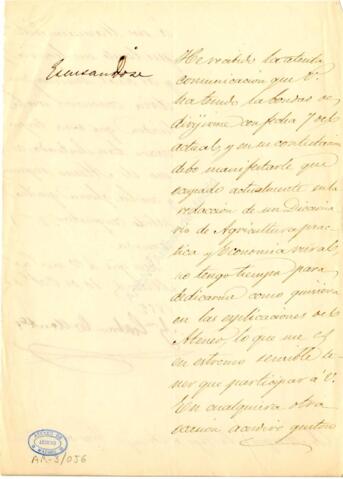 Escusandose
He recibido la atenta
comunicación que V.
ha tenido la bondad de
dirijirme con fecha 7 del
actual, y en su contestacion
debo manifestarle que
ocupado actualmente en la
redaccion de un Dicciona
rio de Agricultura prac
tica y Economia rural,
no tengo tiempo para
dedicarme como quisiera
en las esplicaciones del
Ateneo, lo que me es
en estremo sensible te
ner que participar á V.
En cualquiera otra
ocasion acudiré gustoso
ATENEO DE
MADRID
AR-3/056